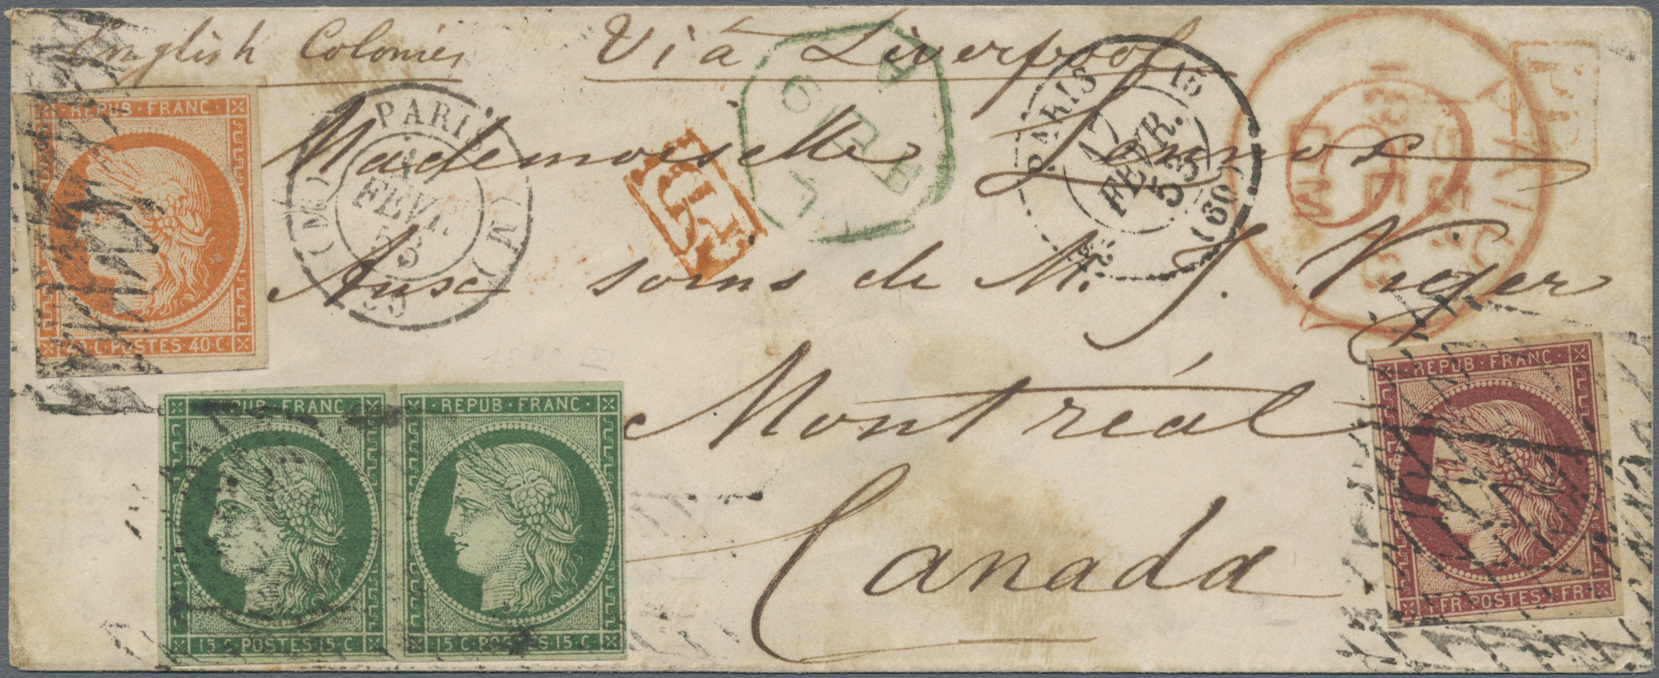 English Colonies Viâ Liverpool
Mademoiselle
Aux soins de M. J. Viger
Montréal
Canada
REPUB·FRANC
40·C·POSTES·40·C
PARIS
FEVR.
53
(60)
PARIS
17
FEVR.
53
(60)
PAID
PD
REPUB·FRANC
15·C·POSTES·15·C
REPUB·FRANC
15·C·POSTES·15·C
REPUB·FRANC
1·FR·POSTES·1·FR